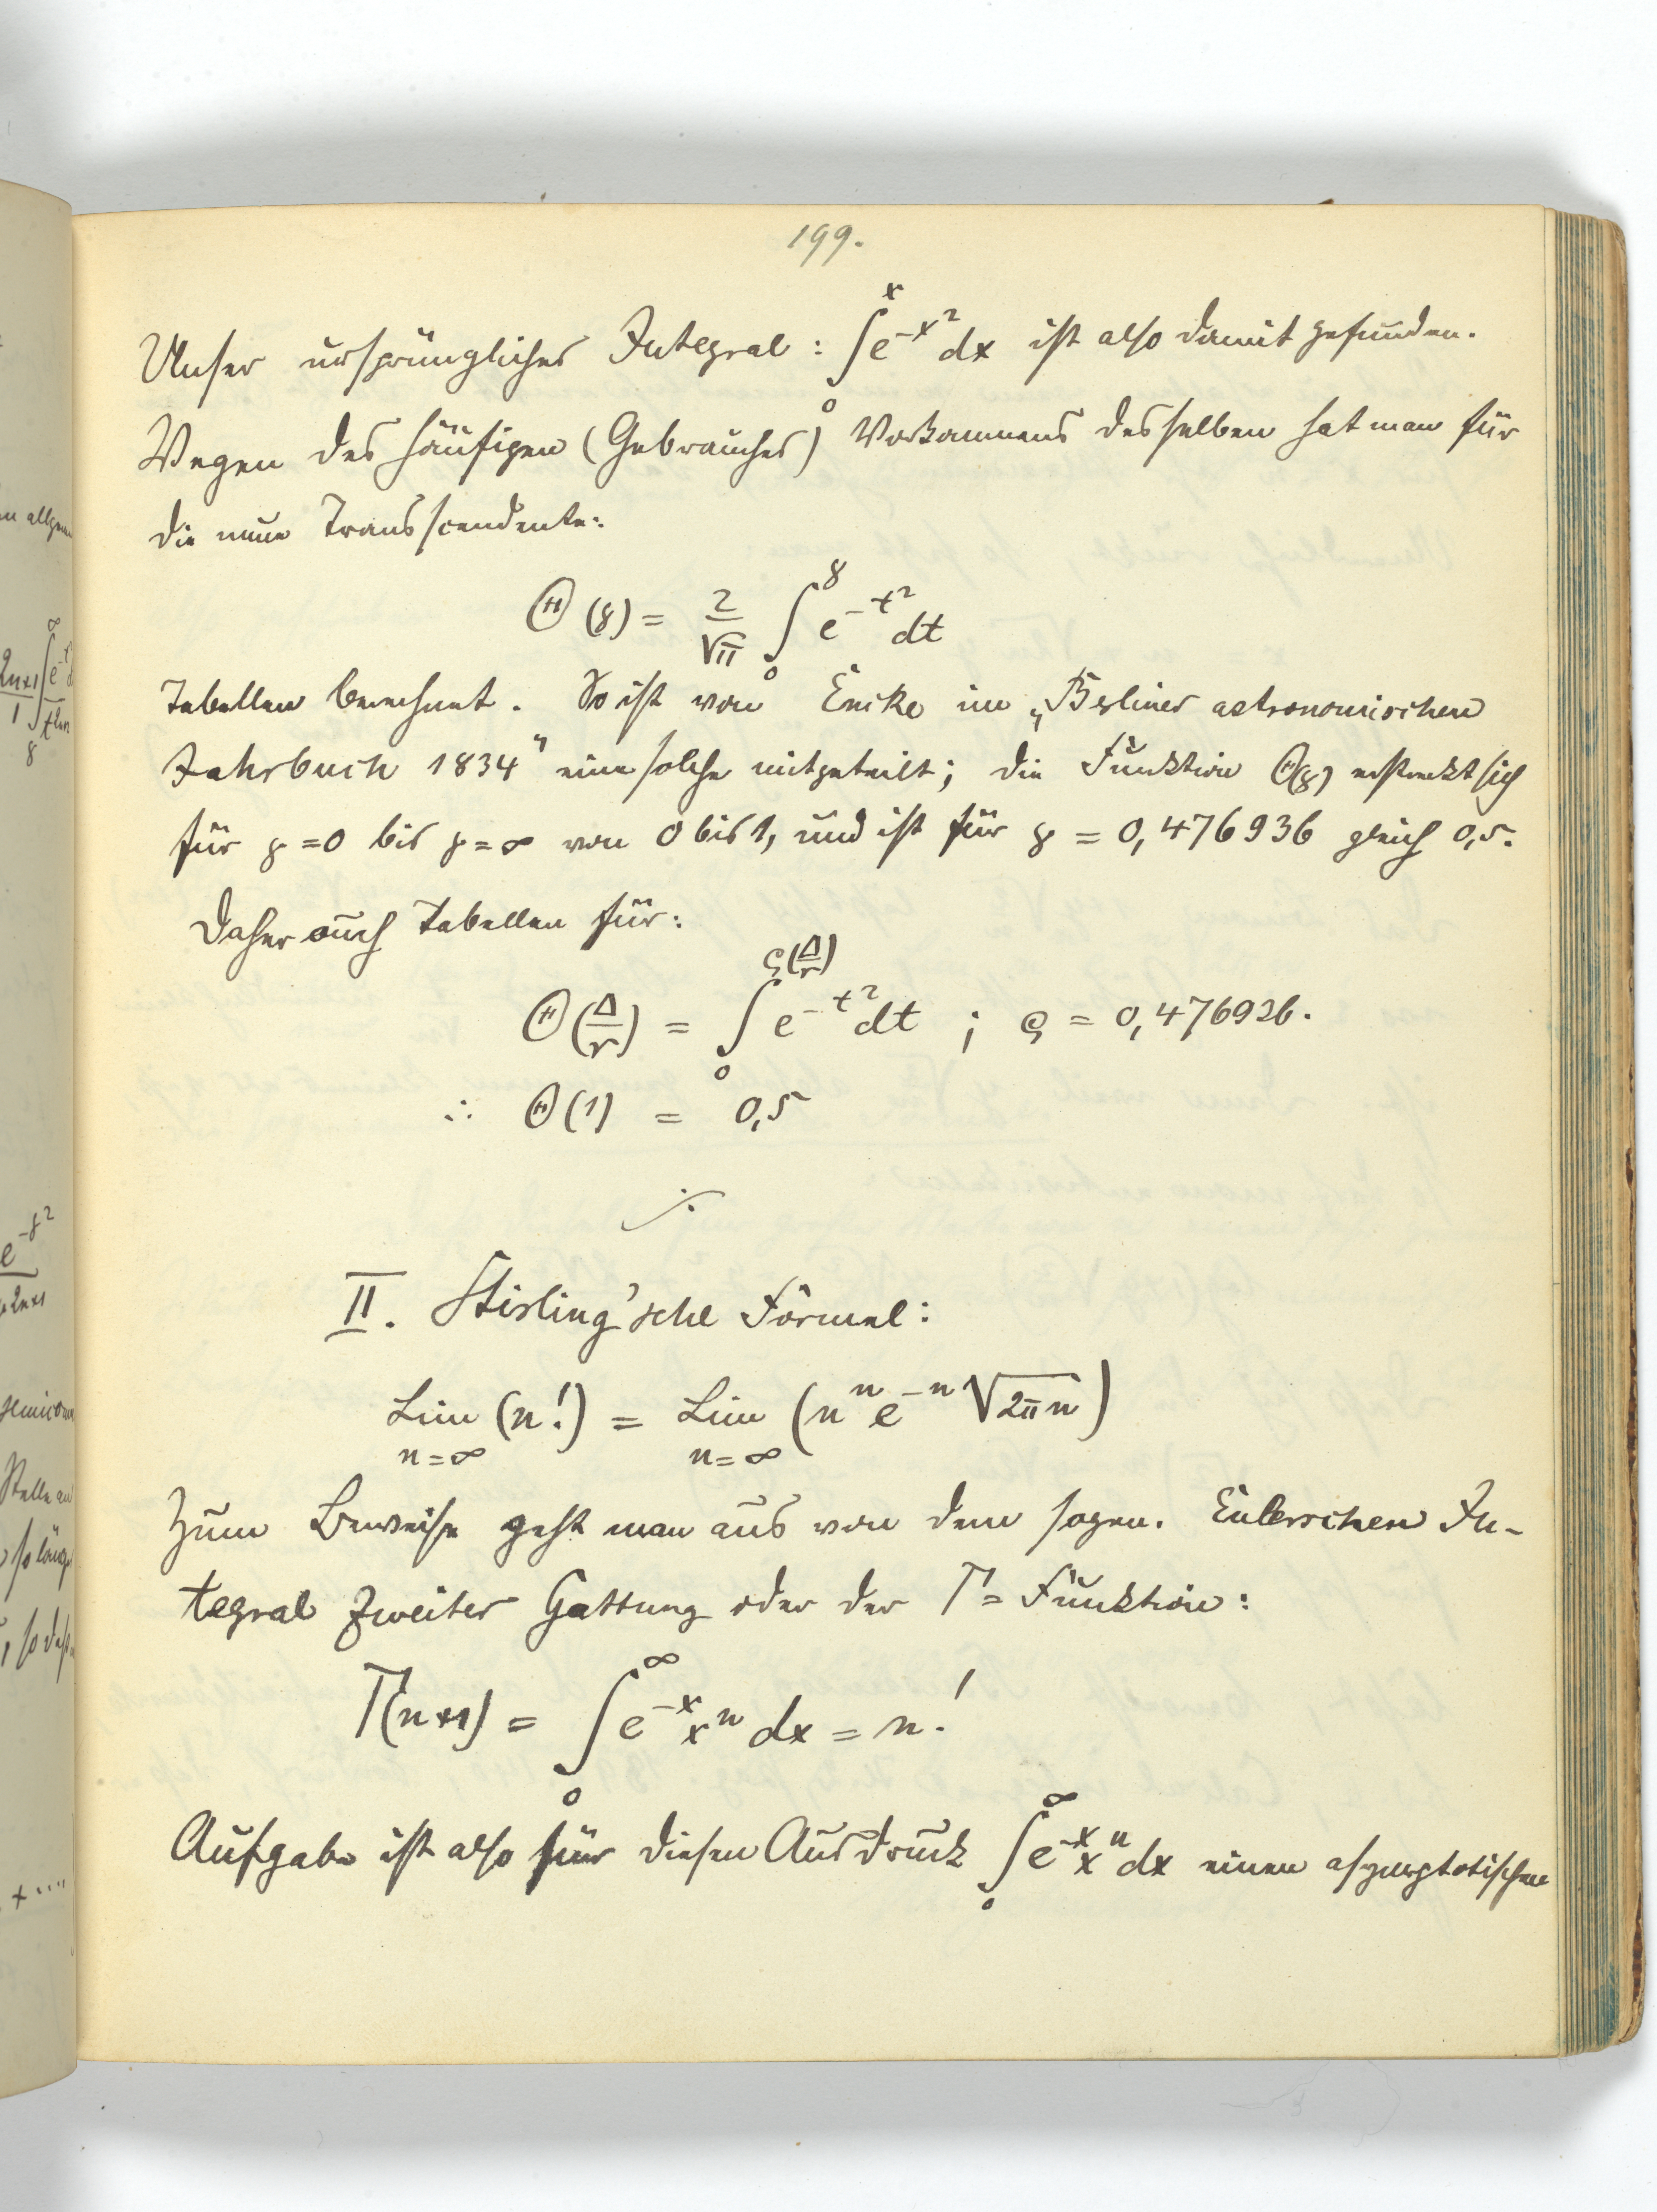 199.
Unser ursprüngliches Integral: ∫₀ˣ e^{-x²} dx ist also damit gefunden.
Wegen des häufigen (Gebrauches) Vorkommens desselben hat man für
die neue Transscendente:
Θ(γ) = 2/√π ∫₀^γ e^{-t²} dt
Tabellen berechnet. So ist von Encke im „Berliner astronomischen
Jahrbuch 1834" eine solche mitgeteilt; die Funktion Θ(γ) erstreckt sich
für γ = 0 bis γ = ∞ von 0 bis 1, und ist für γ = 0,476936 gleich 0,5.
Daher auch Tabellen für:
Θ(Δ/r) = ∫₀^{ρ(Δ/r)} e^{-t²} dt ; ρ = 0,476936.
∴ Θ(1) = 0,5
II. Stirling'sche Formel:
Lim (n!) = Lim (nⁿ e^{-n} √2πn)
n=∞ n=∞
Zum Beweise geht man aus von dem sogen. Eulerschen In-
tegral zweiter Gattung oder der Γ=Funktion:
Γ(n+1) = ∫₀^∞ e^{-x} xⁿ dx = n!
Aufgabe ist also für diesen Ausdruck ∫₀^∞ e^{-x} xⁿ dx einen asymptotischen